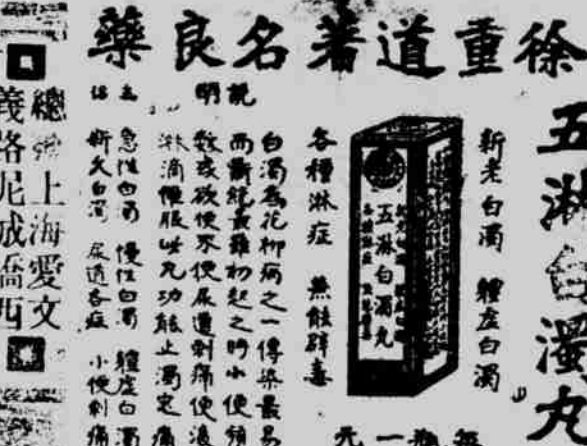 徐重道著名良藥
五淋白濁丸
新老白濁 體虛白濁
五淋白濁丸
各種淋症 兼能辟毒
每瓶一元
說明
白濁為花柳病之一傳染最易
而斷最難初起之時小便頻
數或欲便不便尿道刺痛便後
淋滴服此丸功能止濁定痛
主治
急性白濁 慢性白濁 體虛白濁
新久白濁 尿道各症 小便刺痛
總 上海愛文
義路尼城橋西